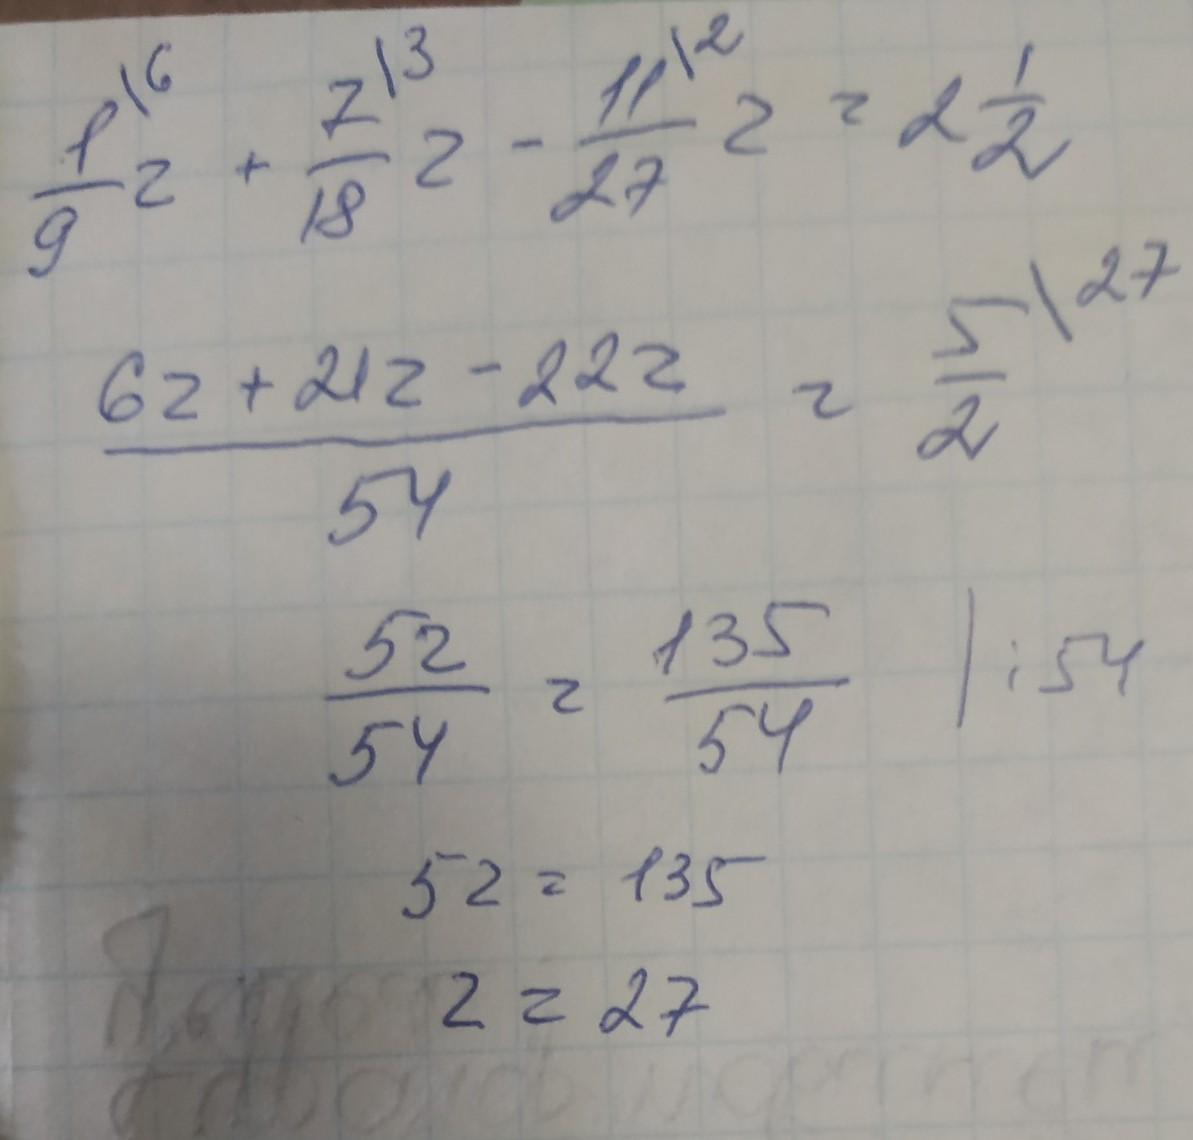 1\6/9 z + 7\3/18 z - 11\2/27 z = 2 1/2
6z + 21z - 22z / 54 = 5/2 \27
5z/54 = 135/54 | : 54
5z = 135
z = 27